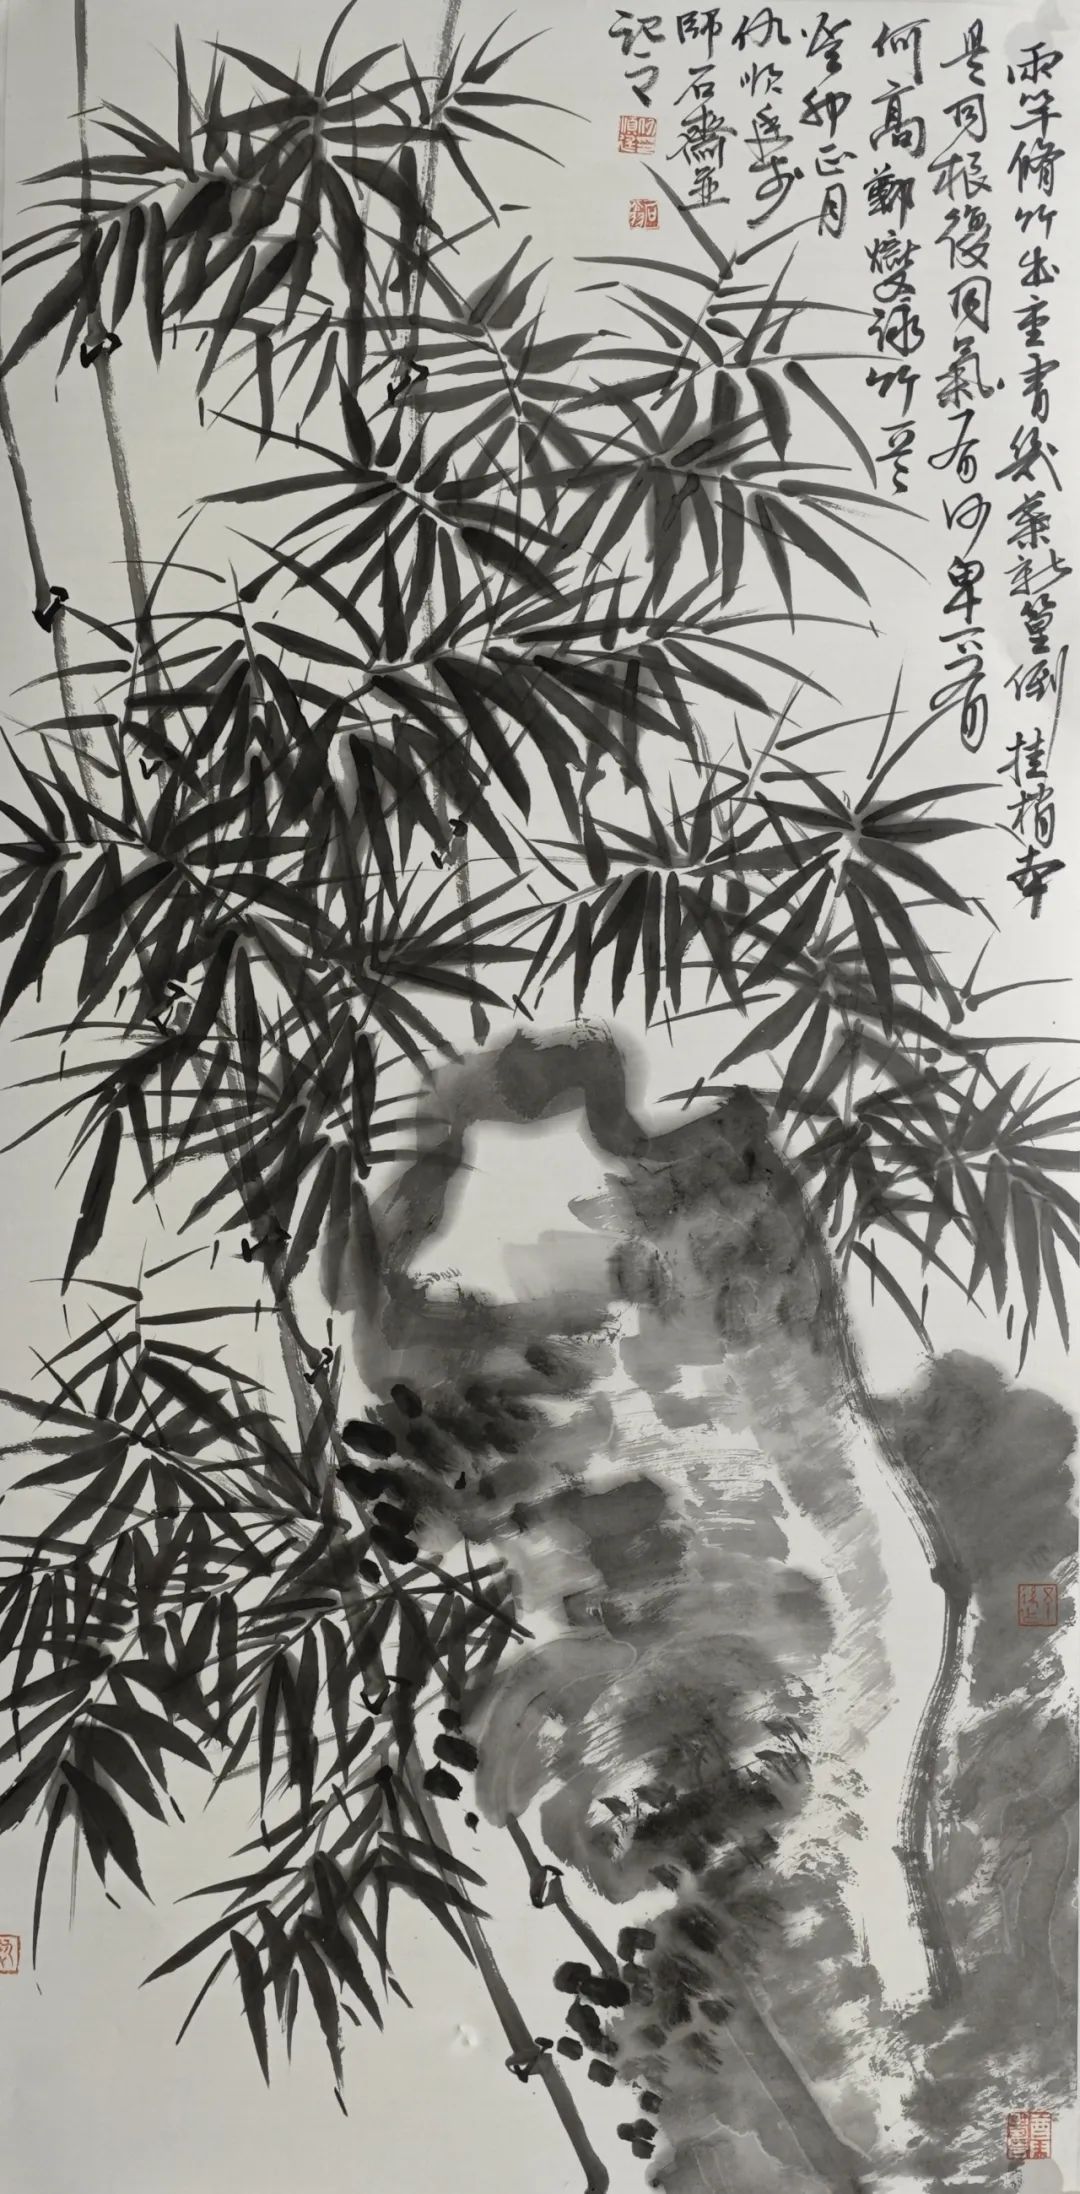 兩竿脩竹出重霄幾葉新篁倒挂梢本
是同根復同氣有何卑下有
何高鄭燮詠竹
癸卯正月
仇順逵於
師石齋並
記之